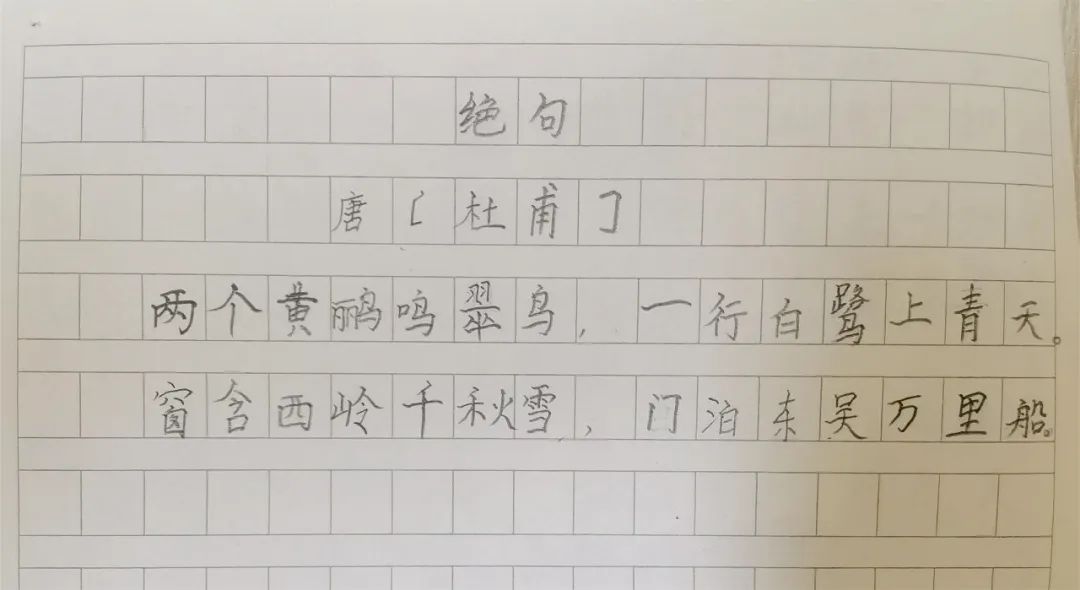 绝句
唐〔杜甫〕
两个黄鹂鸣翠鸟，一行白鹭上青天。
窗含西岭千秋雪，门泊东吴万里船。